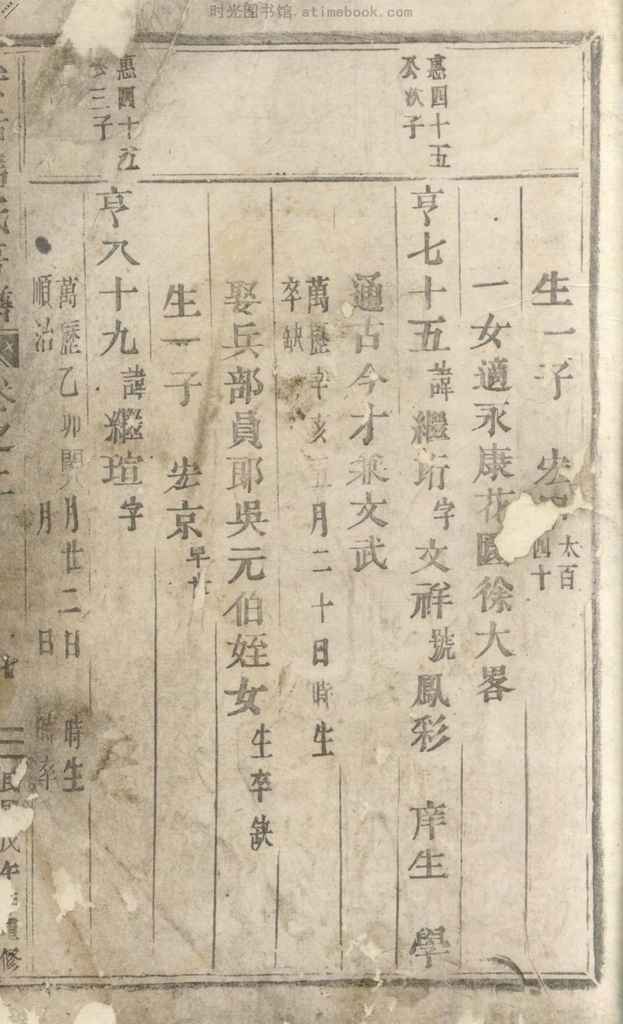 时光图书馆 atimebook.com
惠四十五
公次子
惠四十五
三子
生一子 宏 太百
四十
一女適永康花園徐大畧
亨七十五諱繼珩字文祥號鳳彩 庠生 學
通古今才兼文武
萬歷辛亥五月二十日時生
卒缺
娶兵部員郎吳元伯姪女生卒缺
生一子 宏京早亡
亨八十九諱繼瑄字
萬歷乙卯閏月廿二日 時生
順治 月 日 時卒
午 重修